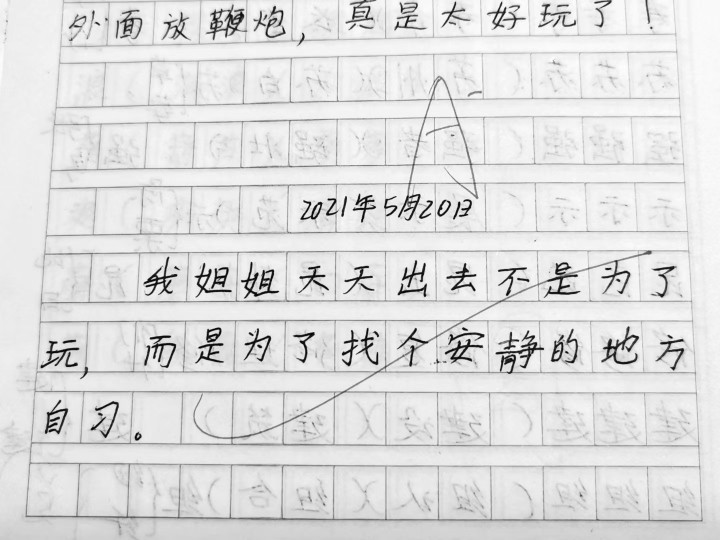 外面放鞭炮，真是太好玩了！
A
2021年5月20日
我姐姐天天出去不是为了
玩，而是为了找个安静的地方
自习。